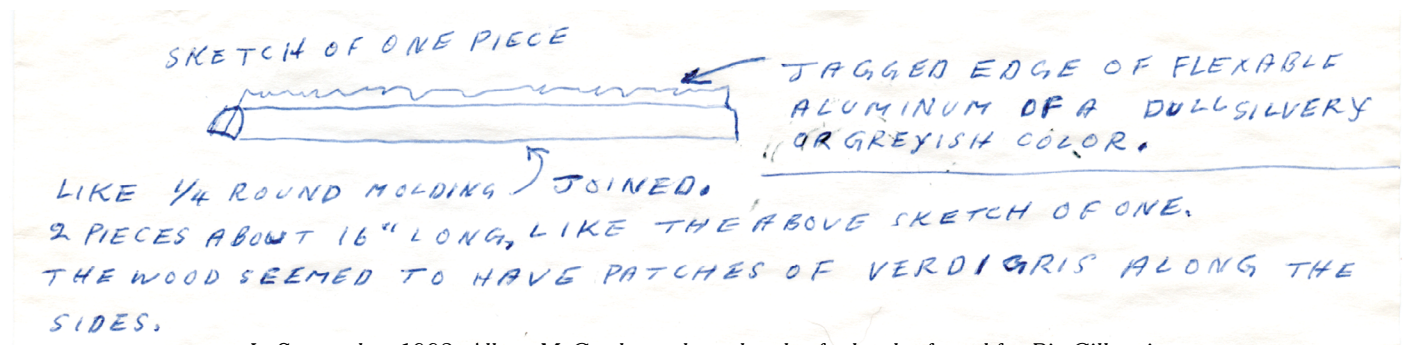 SKETCH OF ONE PIECE
JAGGED EDGE OF FLEXABLE
ALUMINUM OF A DULL SILVERY
OR GREYISH COLOR.
LIKE 1/4 ROUND MOLDING JOINED.
2 PIECES ABOUT 16" LONG, LIKE THE ABOVE SKETCH OF ONE.
THE WOOD SEEMED TO HAVE PATCHES OF VERDIGRIS ALONG THE
SIDES.